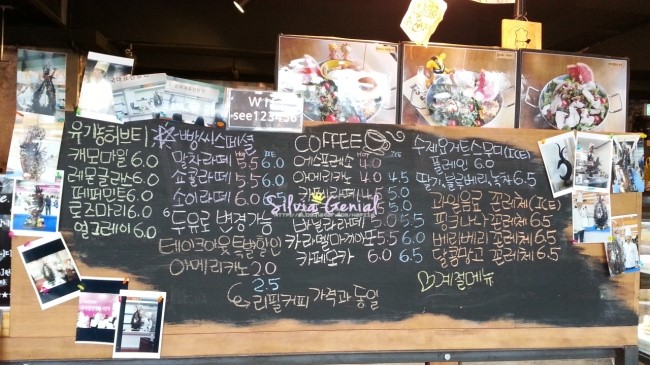 유기농허브티
캐모마일 6.0
레몬글라스 6.0
페퍼민트 6.0
로즈마리 6.0
얼그레이 6.0
빵빵씨스페셜
말차라떼 5.5 6.0
쇼콜라떼 5.5
소이라떼 6.0
두유로 변경가능
테이크아웃 특별할인
아메리카노 2.0
2.5
리필커피 가격과 동일
Wifi
see123456
COFFEE
ICE
에스프레소 4.0
아메리카노 4.0 4.5
5.0
바닐라라떼 5.0 5.5
카라멜마끼아또 5.5 6.0
카페모카 6.0 6.5
Silvia Genial
수제요거트스무디(ICE)
플레인 6.0
딸기,블루베리,녹차 6.5
과일음료 꼬레제(ICE)
핑크나나 꼬레제 6.5
베리베리 꼬레제 6.5
달콤망고 꼬레제 6.5
계절메뉴